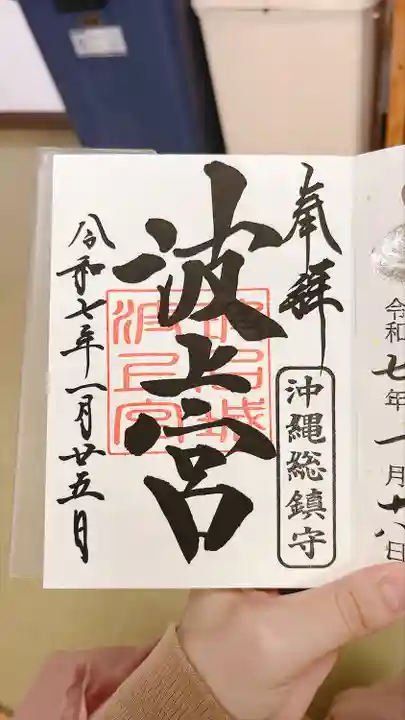 奉拝
沖縄総鎮守
波上宮
令和七年一月廿五日
令和七年一月十八日